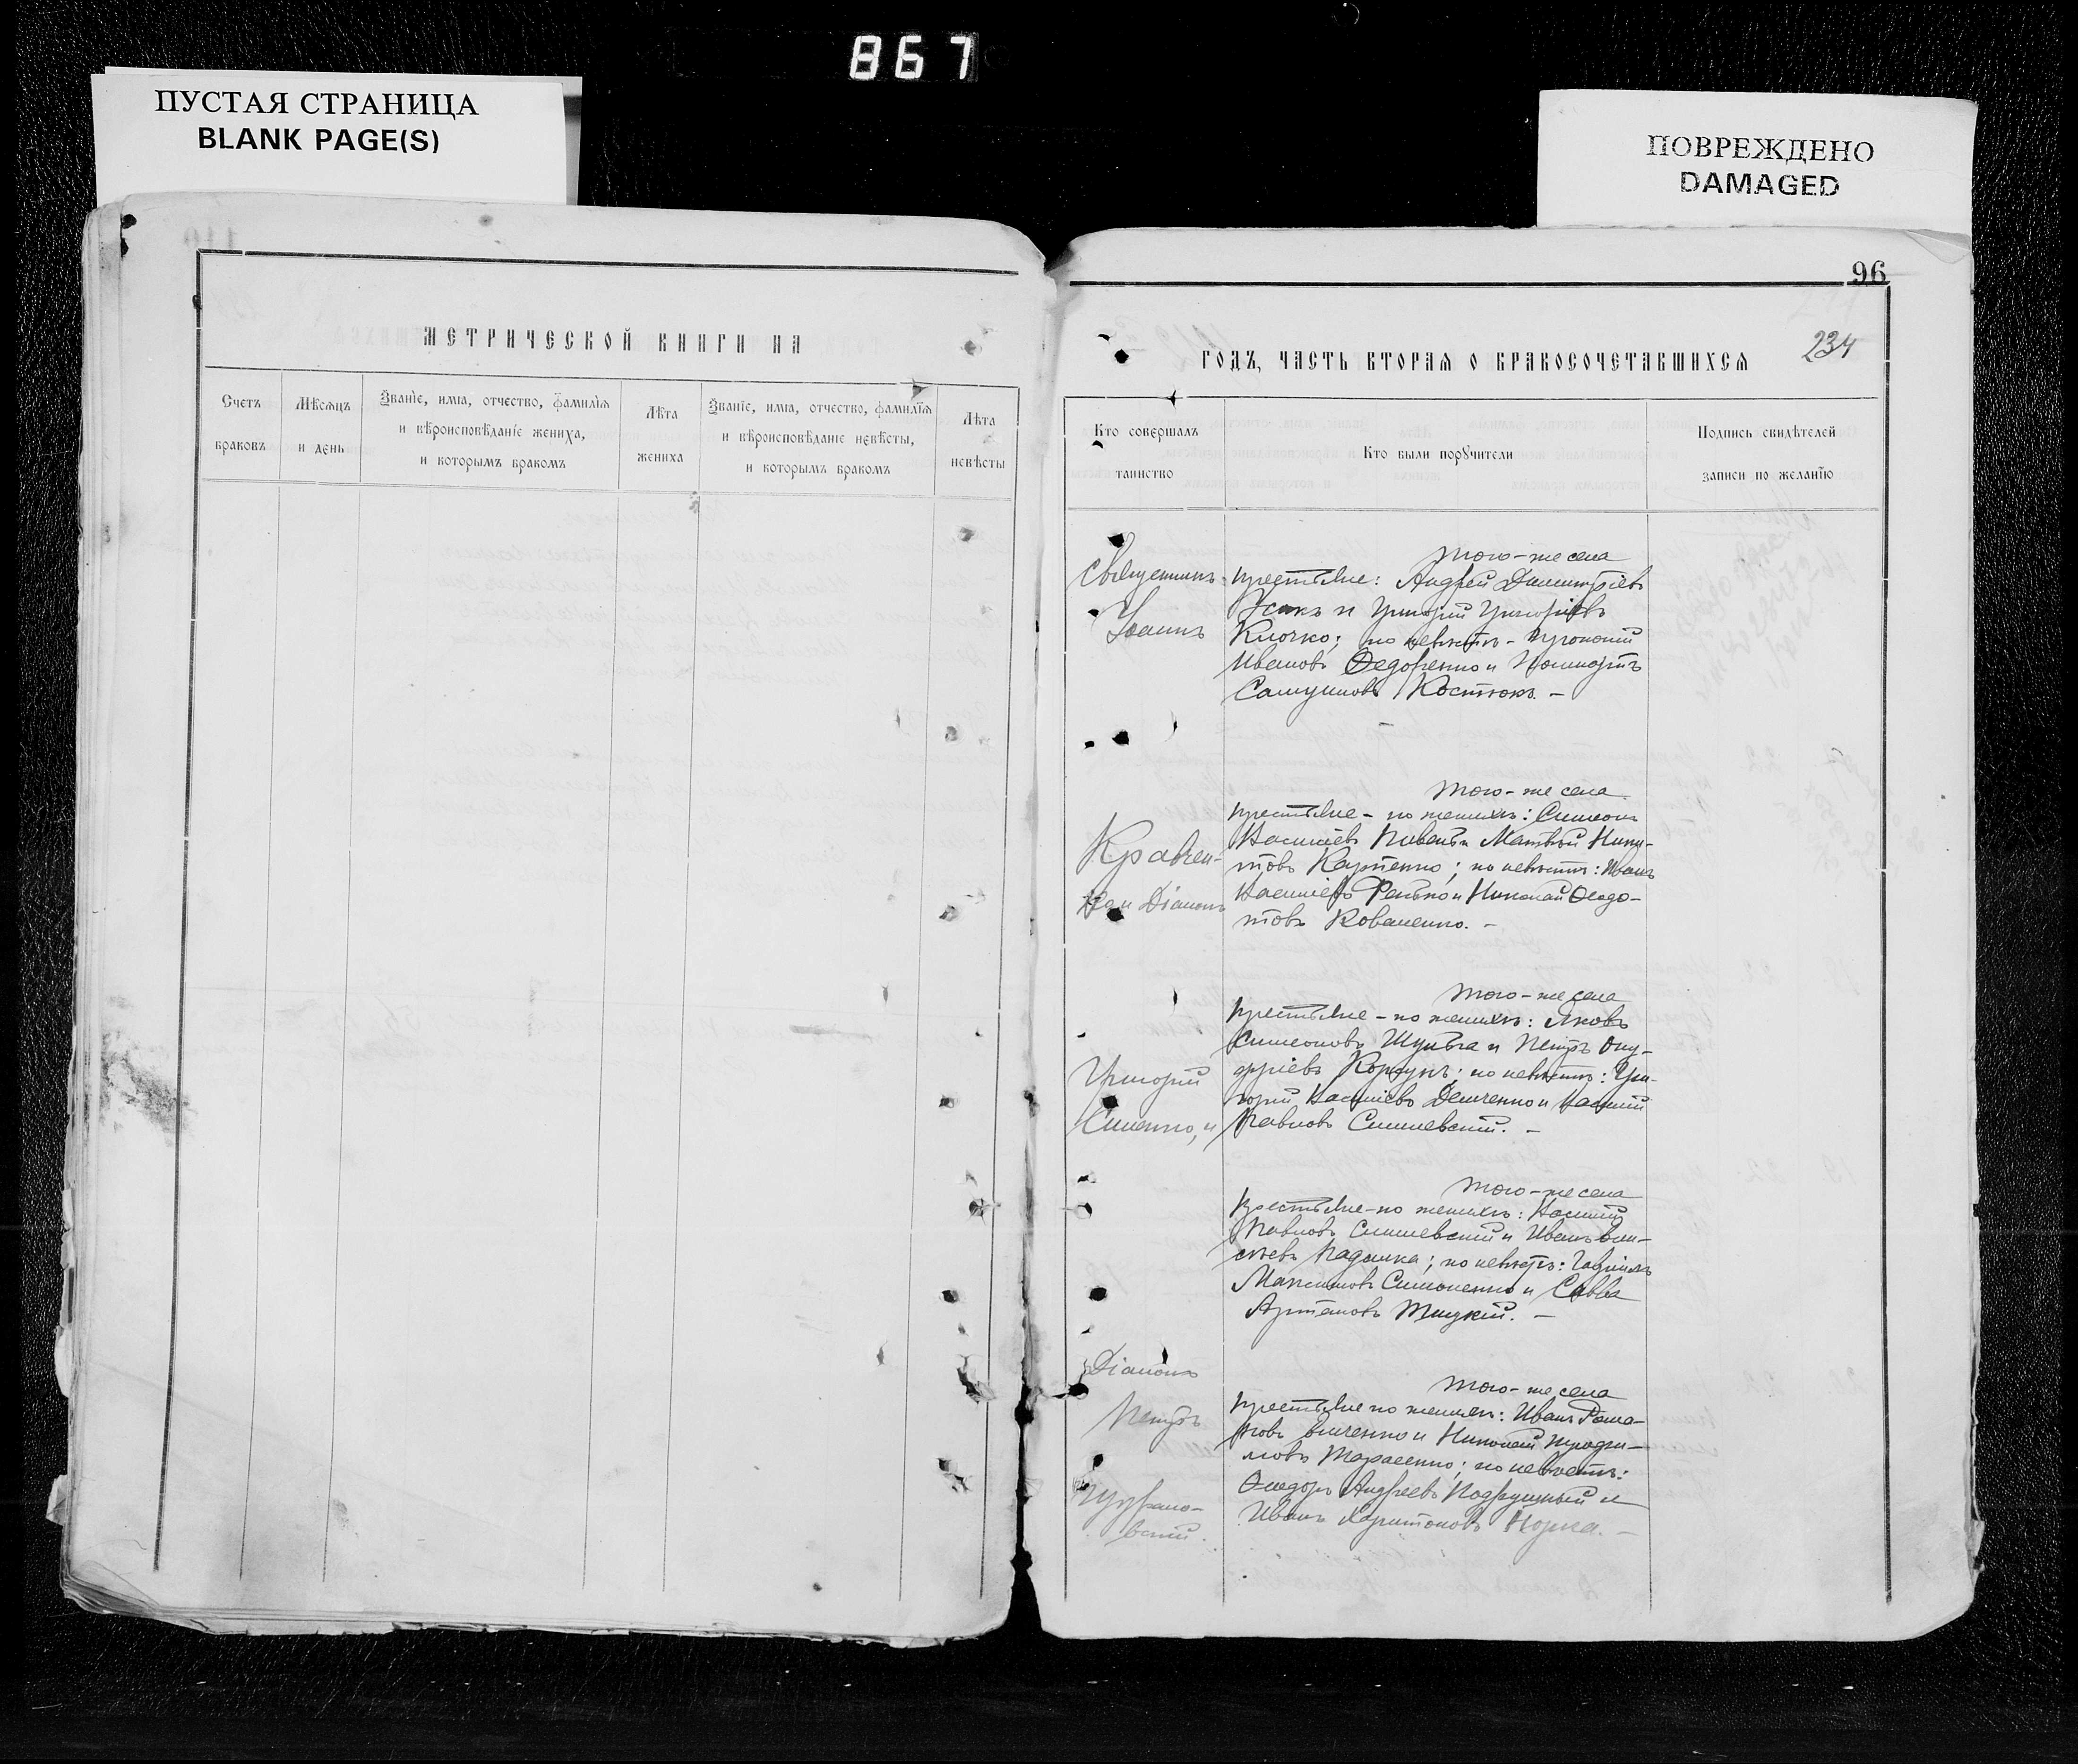 867
ПУСТАЯ СТРАНИЦА
BLANK PAGE(S)
ПОВРЕЖДЕНО
DAMAGED
МЕТРИЧЕСКОЙ КНИГИ НА
Счетъ
браковъ
Мѣсяцъ
и день
Званіе, имя, отчество, фамилія
и вѣроисповѣданіе жениха,
и которымъ бракомъ
Лѣта
жениха
Званіе, имя, отчество, фамилія
и вѣроисповѣданіе невѣсты,
и которымъ бракомъ
Лѣта
невѣсты
96
234
ГОДЪ, ЧАСТЬ ВТОРАЯ О БРАКОСОЧЕТАВШИХСЯ
Кто совершалъ
таинство
Кто были поручители
Подпись свидѣтелей
записи по желанію
Священникъ
Іоаннъ
Кравчен-
ко и Діаконъ
Григорій
Сименко, и
Діаконъ
Петръ
вскій.
того-же села
крестьяне: Андрей Димитріевъ
Усикъ и Григорій Григоріевъ
Клочко; по невѣстѣ - Прокопій
Ивановъ Ѳедоренко и
Самуиловъ Костюкъ. -
того-же села
крестьяне - по женихѣ: Симеонъ
Василіевъ Пивень и Матвѣй Ники-
товъ Карпенко; по невѣстѣ: Иванъ
Василіевъ Репько и Николай Ѳеодо-
товъ Коваленко. -
того-же села
крестьяне - по женихѣ: Яковъ
Симеоновъ Шульга и Петръ Ону-
фріевъ Коржукъ; по невѣстѣ: Гри-
горій Василіевъ Демченко и Василій
Павловъ Симилевскій. -
того-же села
крестьяне - по женихѣ: Василій
Павловъ Симилевскій и Иванъ Ели-
сѣевъ Падалка; по невѣстѣ: Гавріилъ
Максимовъ Симоненко и Савва
Артемовъ Тицкій. -
того-же села
крестьяне по женихѣ: Иванъ Рома-
новъ и Николай Трофи-
мовъ Тарасенко; по невѣстѣ:
Ѳеодоръ Андреевъ Подрушный и
Иванъ Харитоновъ Норка. -